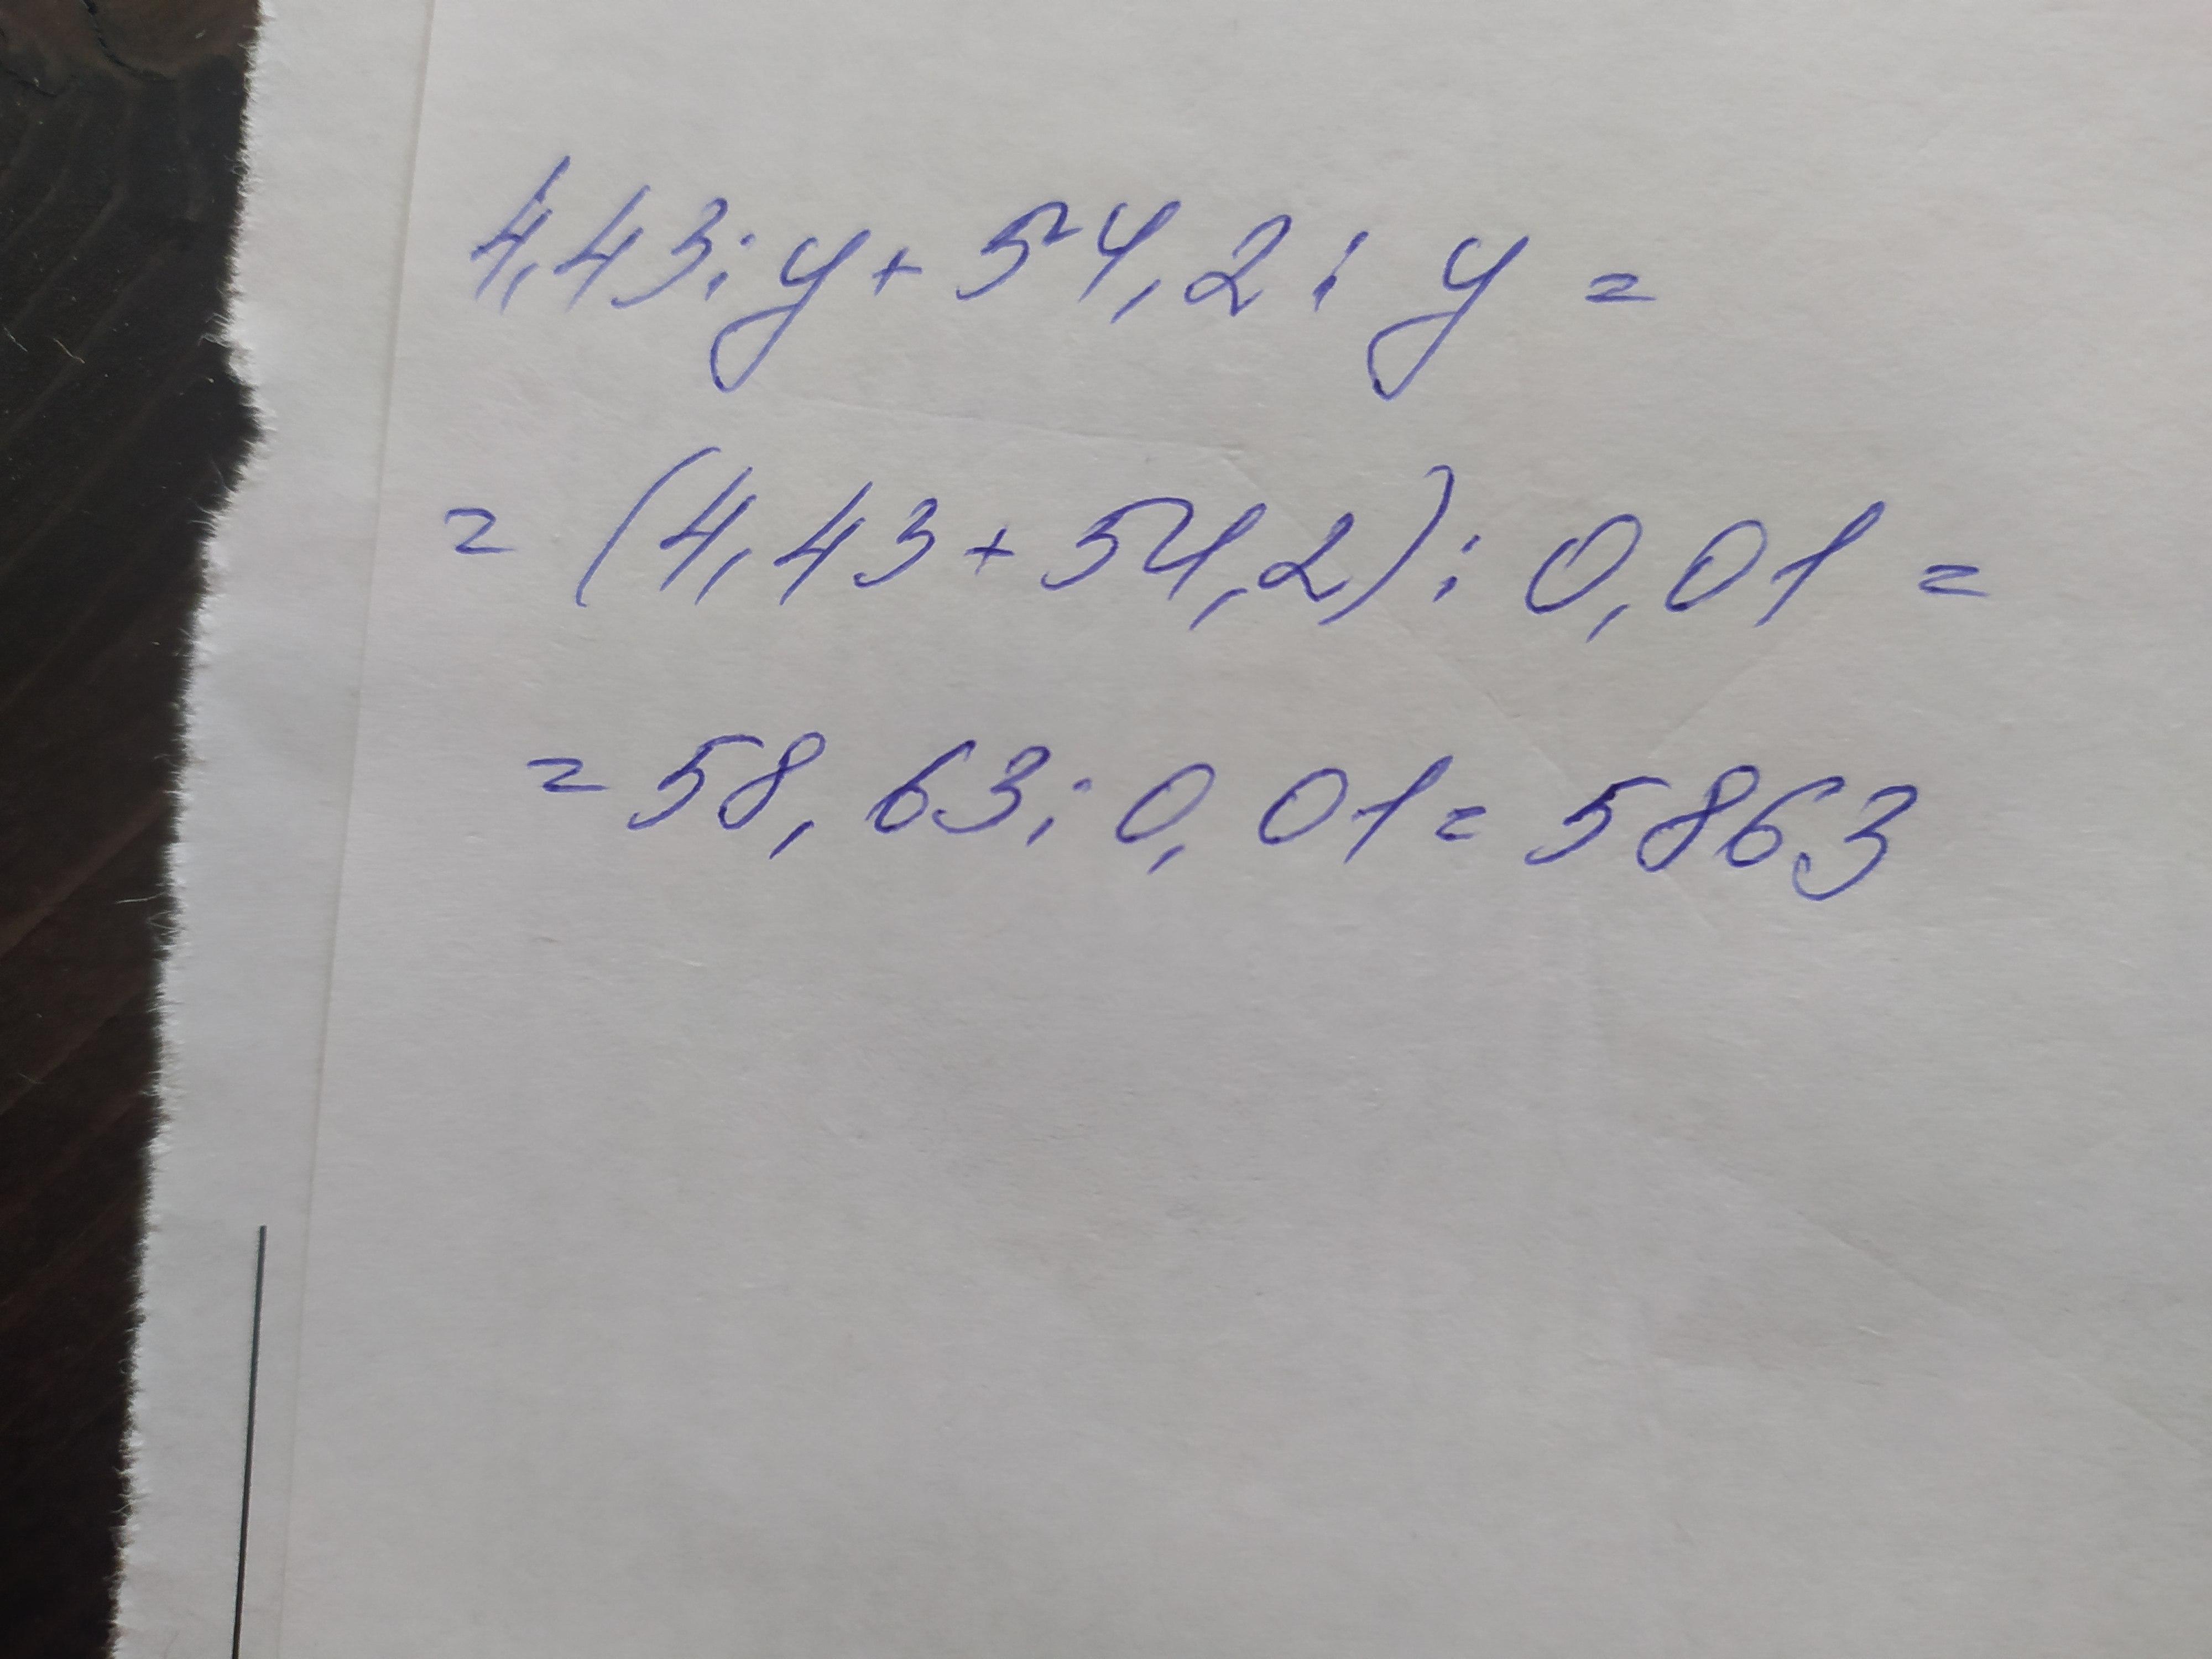 4,43:y+54,2:y=
=(4,43+54,2):0,01=
=58,63:0,01=5863